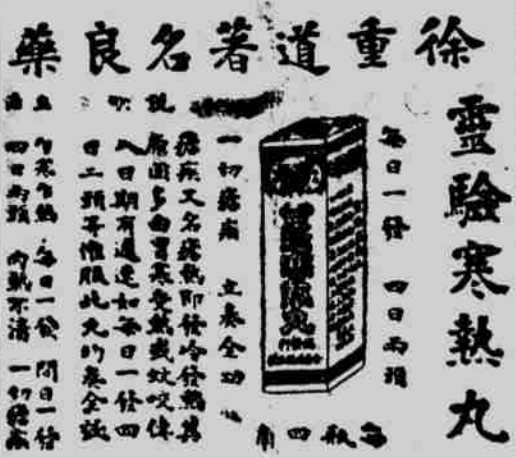 徐重道著名良藥
靈驗寒熱丸
每日一發　四日兩頭
每瓶四角
一切瘧疾　立奏全功
瘧疾又名瘧熱即發冷發熱其
原因多由冒寒受熱或蚊咬傳
入日期有遲速如每日一發四
日二頭等惟服此丸的奏全效
說明
主治
乍寒乍熱　每日一發　間日一發
四日兩頭　內熱不清　一切瘧疾